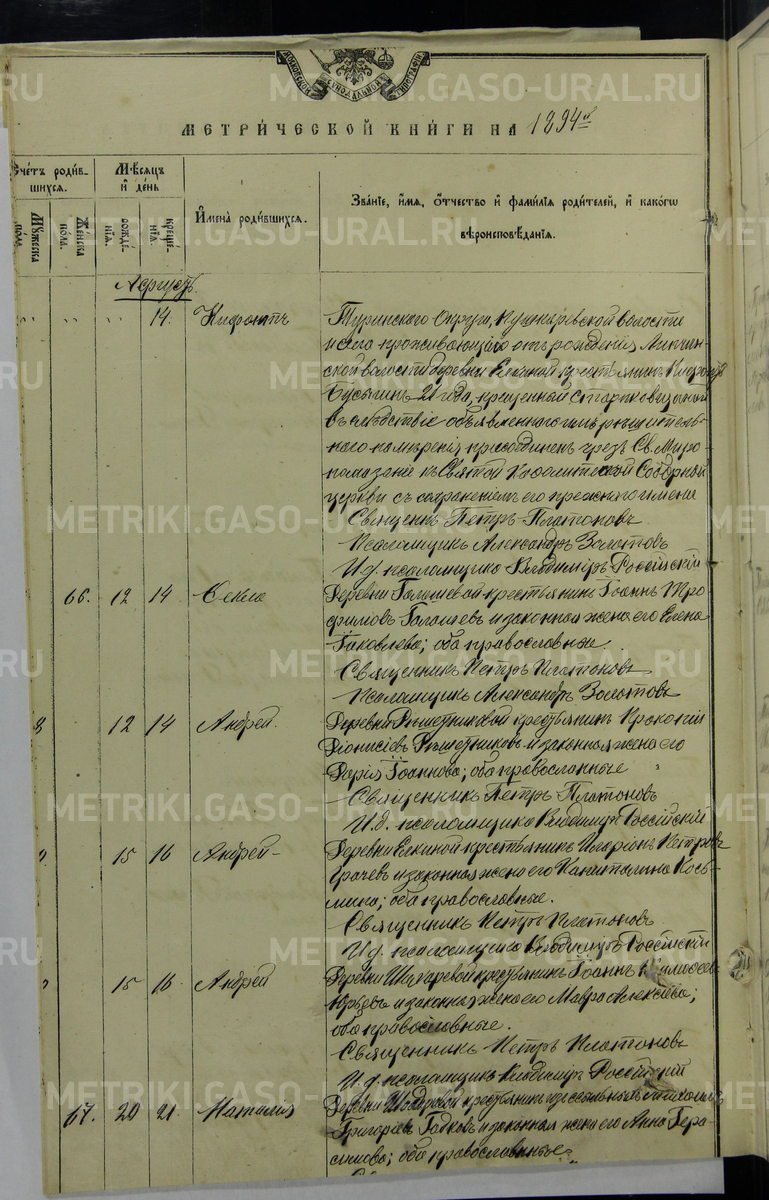 МЕТРИЧЕСКОЙ КНИГИ НА 1894 й
Счетъ родив-
шихся.
Мѣсяцъ
и день
Мужеска
пола.
Женска
пола.
рожде-
нія.
креще-
нія
Имена родившихся.
Званіе, имя, отчество и фамилія родителей, и какого
вѣроисповѣданія.
Августъ.
14. Нифонтъ
Туринскаго Округа, волости
крестьянинъ
Бусыгинъ 21 года, крещенный
въ слѣдствіе объявленнаго имъ рѣшитель-
наго намѣренія присоединенъ чрезъ Св. Миро-
помазаніе къ Святой Соборной
церкви съ сохраненіемъ его прежняго имени
Священникъ Петръ Платоновъ
Псаломщикъ Александръ Золотовъ
И.д. псаломщика Владимиръ Россійскій
66. 12 14
Деревни крестьянинъ Іоаннъ Тро-
фимовъ и законная жена его Елена
Іаковлева; оба православные.
Священникъ Петръ Платоновъ
Псаломщикъ Александръ Золотовъ
8 12 14 Андрей.
Деревни Рѣшетниковой крестьянинъ Прокопій
Діонисіевъ Рѣшетниковъ и законная жена его
Дарія Іоаннова; оба православные
Священникъ Петръ Платоновъ
И.д. псаломщика Владимиръ Россійскій
15 16 Андрей
Деревни Елкиной крестьянинъ Иларіонъ Петровъ
Грачевъ и законная жена его Капиталина Кось-
мина; оба православные.
Священникъ Петръ Платоновъ
И.д. псаломщика Владимиръ Россійскій
15 16 Андрей
Деревни крестьянинъ Іоаннъ
Юрьевъ и законная жена его Мавра Алексіева;
оба православные.
Священникъ Петръ Платоновъ
И.д. псаломщика Владимиръ Россійскій
67. 20 21. Наталія
Деревни крестьянинъ
Григоріевъ и законная жена его Анна Гера-
симова; оба православные.
METRIKI.GASO-URAL.RU